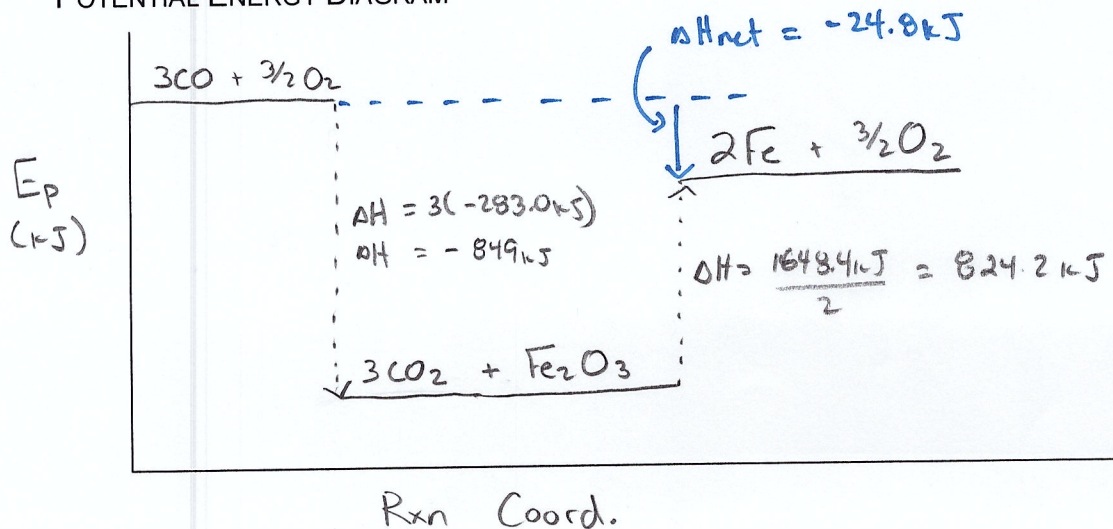 POTENTIAL ENERGY DIAGRAM
ΔHnet = -24.8kJ
3CO + 3/2 O2
2Fe + 3/2 O2
Ep
(kJ)
ΔH = 3(-283.0kJ)
ΔH = -849kJ
ΔH = 1648.4kJ / 2 = 824.2 kJ
3CO2 + Fe2O3
Rxn Coord.